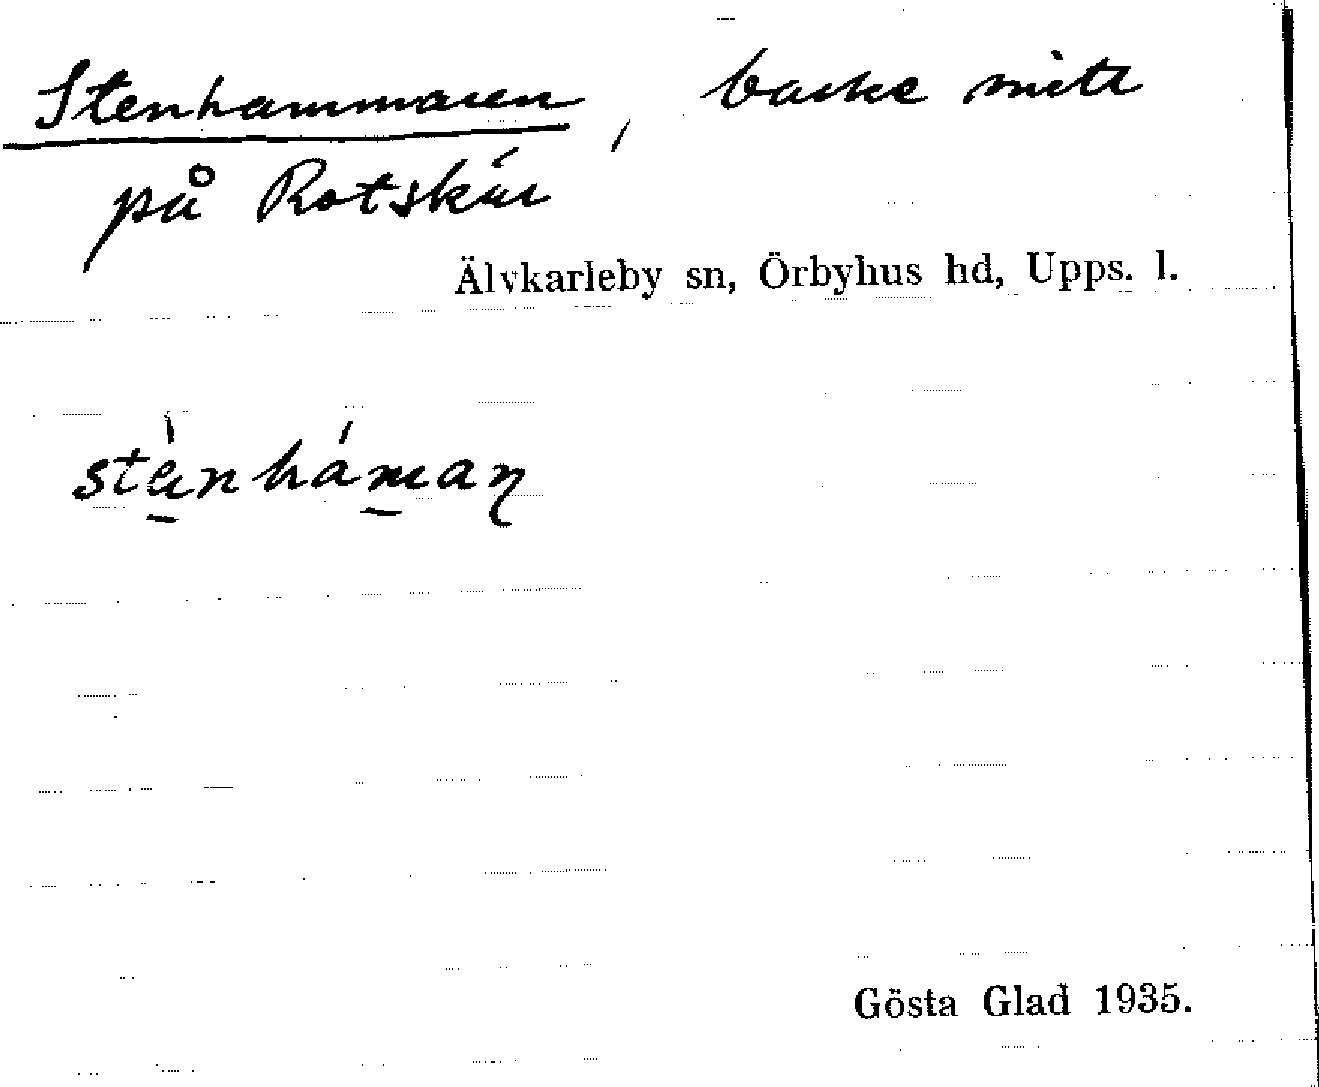 Stenhammaren, backe mitt
på Rotskär
Älvkarleby sn, Örbyhus hd, Upps. l.
stènháman
Gösta Glad 1935.